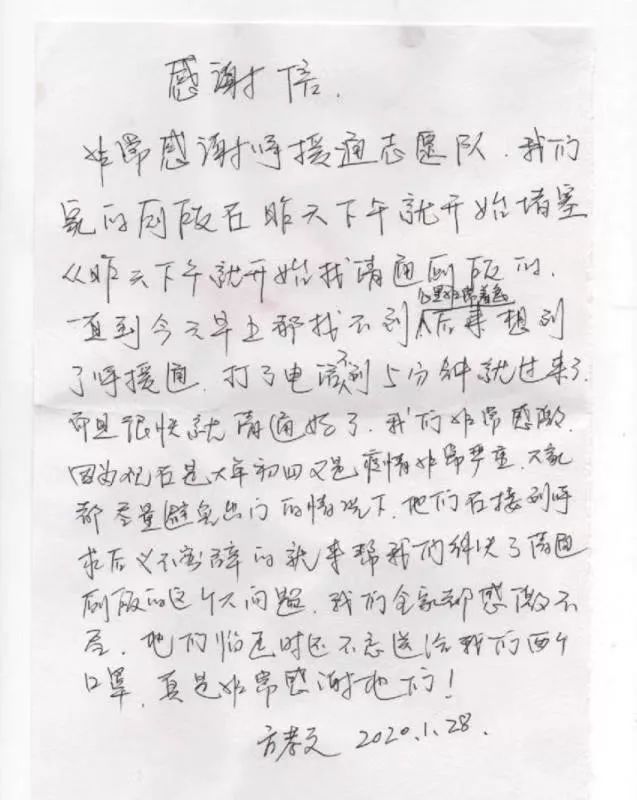 感谢信.
非常感谢呼援通志愿队.我们
家的厕所在昨天下午就开始堵塞
从昨天下午就开始找清通厕所的.
心里非常着急
一直到今天早上都找不到后来想到
了呼援通.打了电话不到5分钟就过来了.
而且很快就清通好了.我们非常感激.
因为现在是大年初四又是疫情非常严重.大家
都尽量避免出门的情况下.他们在接到呼
求后义不容辞的就来帮我们解决了清通
厕所的这个大问题.我们全家都感激不
尽.他们临走时还不忘送给我们两个
口罩.真是非常感谢他们!
方孝文 2020.1.28.